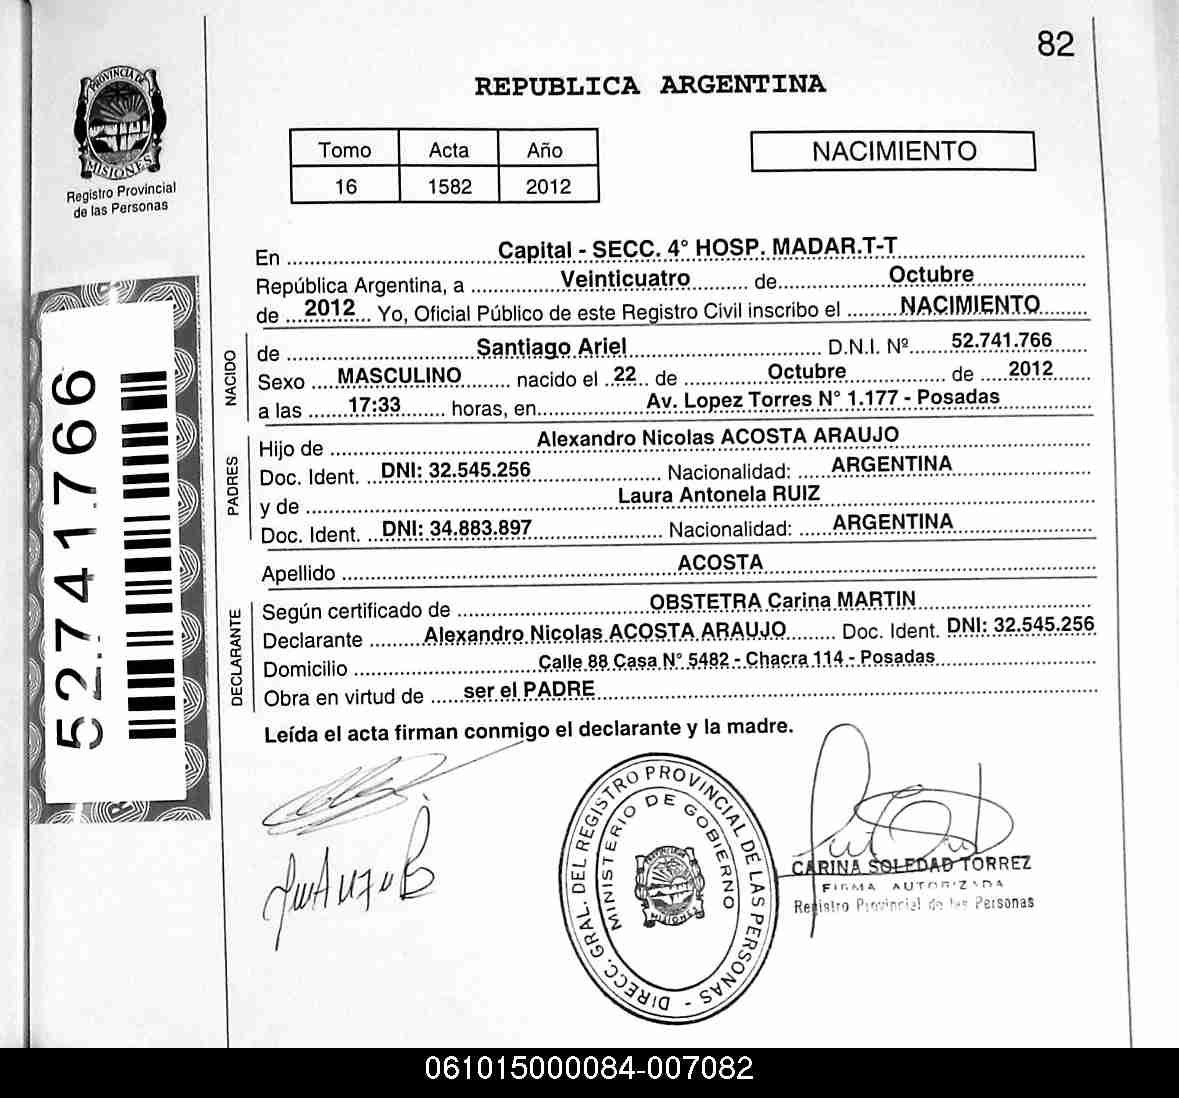 82
PROVINCIA DE
MISIONES
Registro Provincial
de las Personas
REPUBLICA ARGENTINA
Tomo Acta Año
16 1582 2012
NACIMIENTO
En Capital - SECC. 4° HOSP. MADAR.T-T
República Argentina, a Veinticuatro de Octubre
de 2012 Yo, Oficial Público de este Registro Civil inscribo el NACIMIENTO
NACIDO
de Santiago Ariel D.N.I. Nº 52.741.766
Sexo MASCULINO nacido el 22 de Octubre de 2012
a las 17:33 horas, en Av. Lopez Torres N° 1.177 - Posadas
PADRES
Hijo de Alexandro Nicolas ACOSTA ARAUJO
Doc. Ident. DNI: 32.545.256 Nacionalidad: ARGENTINA
y de Laura Antonela RUIZ
Doc. Ident. DNI: 34.883.897 Nacionalidad: ARGENTINA
Apellido ACOSTA
DECLARANTE
Según certificado de OBSTETRA Carina MARTIN
Declarante Alexandro Nicolas ACOSTA ARAUJO Doc. Ident. DNI: 32.545.256
Domicilio Calle 88 Casa N° 5482 - Chacra 114 - Posadas
Obra en virtud de ser el PADRE
Leída el acta firman conmigo el declarante y la madre.
52741766
DIRECC. GRAL. DEL REGISTRO PROVINCIAL DE LAS PERSONAS -
MINISTERIO DE GOBIERNO
MISIONES
CARINA SOLEDAD TORREZ
FIRMA AUTORIZADA
Registro Provincial de las Personas
061015000084-007082